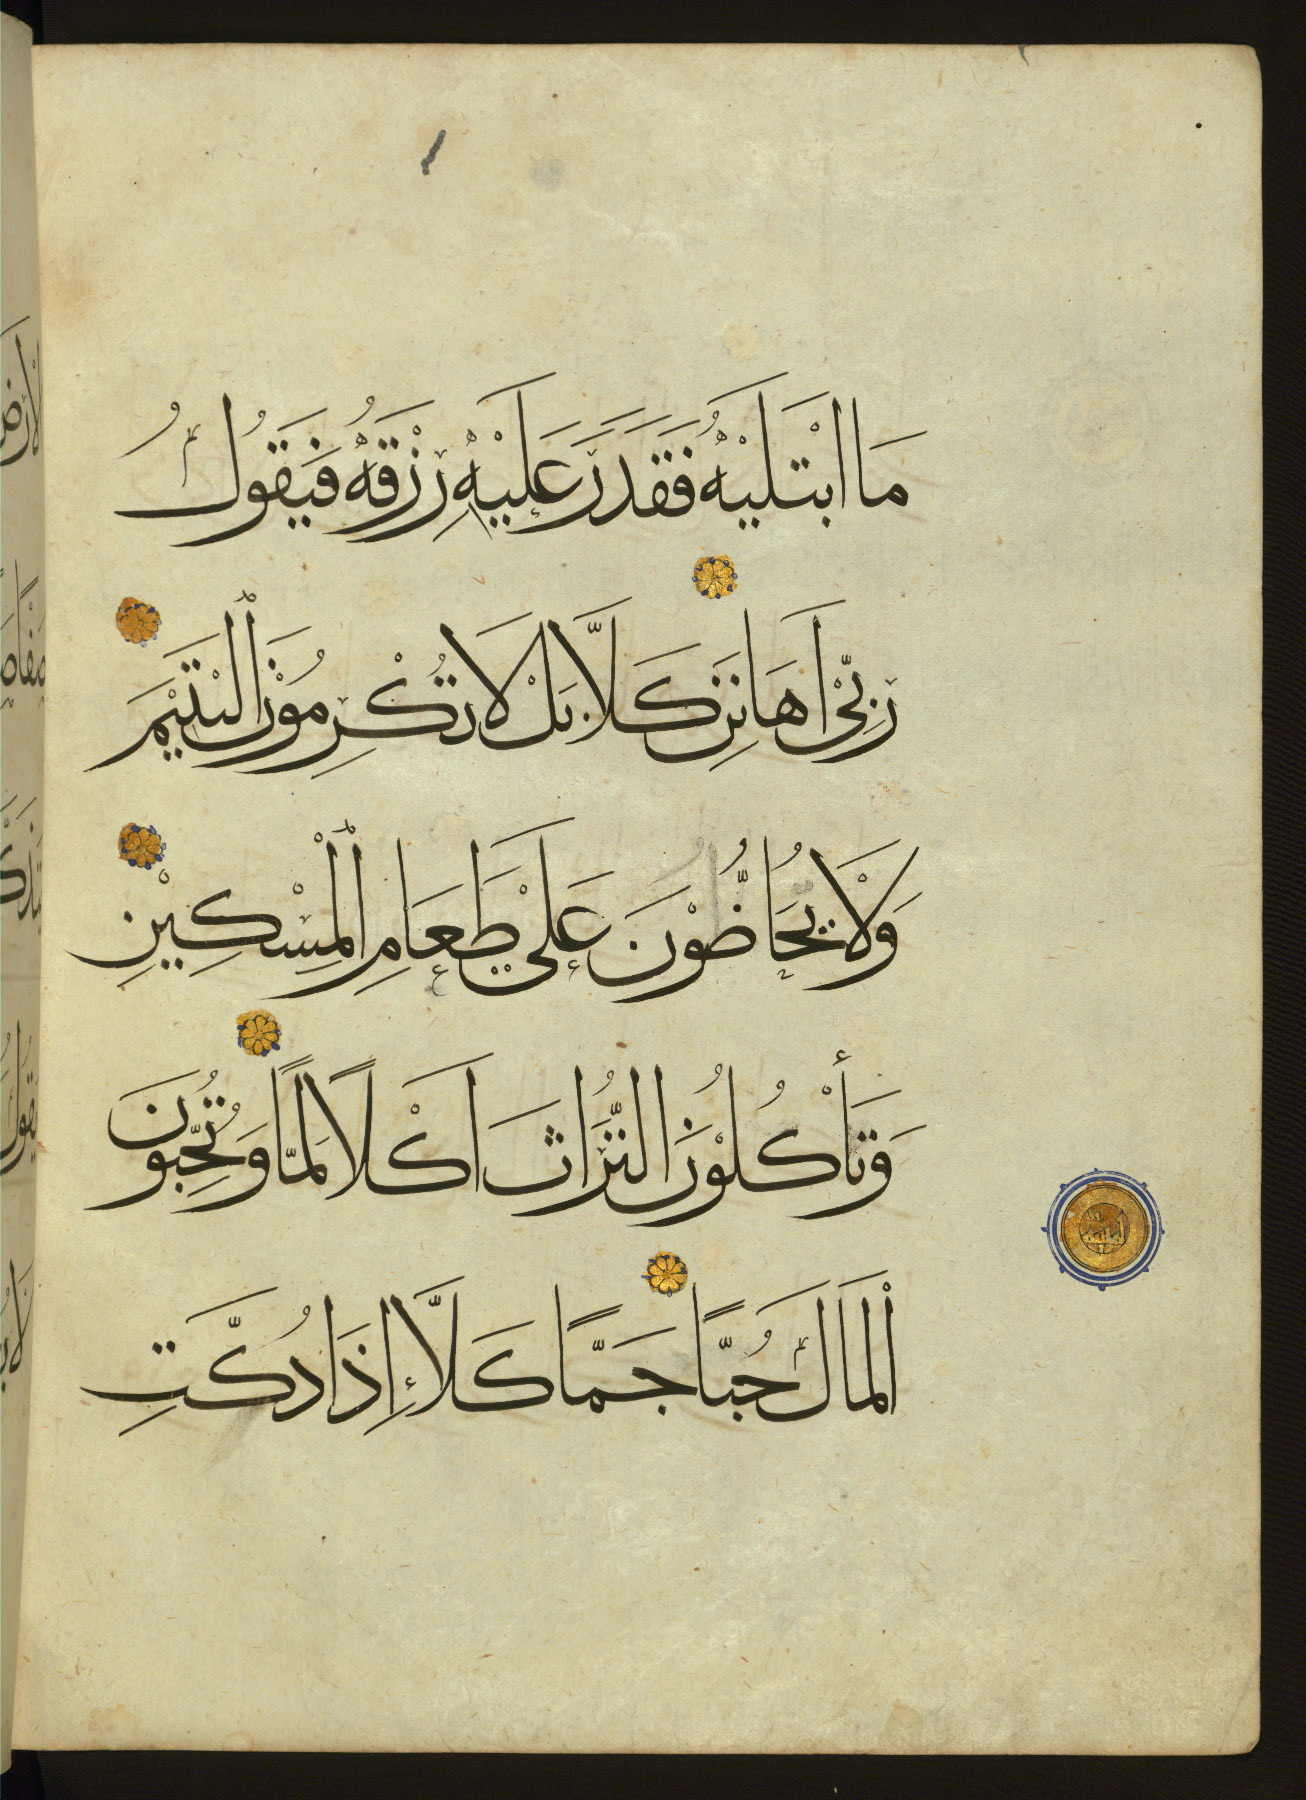 مَا ابْتَلَيٰهُ فَقَدَرَ عَلَيْهِ رِزْقَهُ فَيَقُولُ
رَبِّيْ أَهَانَنِ كَلَّا بَلْ لَا تُكْرِمُوْنَ الْيَتِيْمَ
وَلَا يُحَاضُّوْنَ عَلٰى طَعَامِ الْمِسْكِيْنِ
وَتَأْكُلُوْنَ التُّرَاثَ أَكْلًا لَمًّا وَتُحِبُّونَ
الْمَالَ حُبًّا جَمًّا كَلَّا إِذَا دُكَّتِ